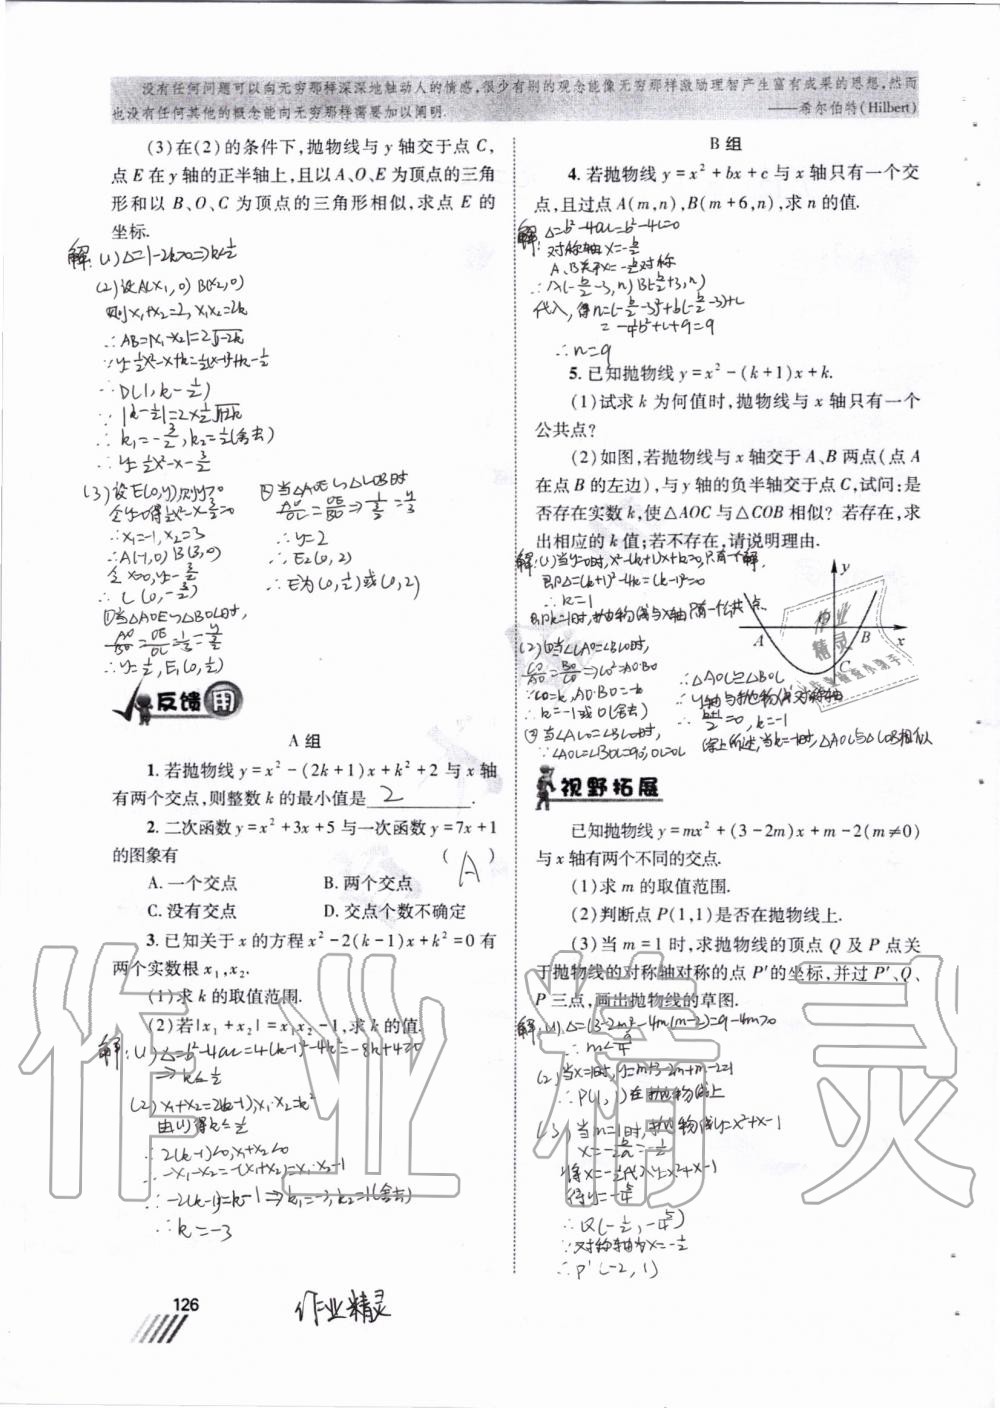 没有任何问题可以向无穷那样深深地触动人的情感,很少有别的观念能像无穷那样激励理智产生富有成果的思想,然而
也没有任何其他的概念能向无穷那样需要加以阐明.
——希尔伯特(Hilbert)
(3)在(2)的条件下,抛物线与y轴交于点C,
点E在y轴的正半轴上,且以A、O、E为顶点的三角
形和以B、O、C为顶点的三角形相似,求点E的
坐标.
解:(1)△=1-2k>0⇒k<1/2
(2)设A(x₁,0) B(x₂,0)
则x₁+x₂=2, x₁x₂=2k
∴AB=|x₁-x₂|=2√1-2k
∴D(1,k-1/2)
∴|k-1/2|=2×1/2√1-2k
∴k₁=-3/2,k₂=1/2(舍去)
∴y=1/2x²-x-3/2
(3)设E(0,y),则y>0
令y=0得1/2x²-x-3/2=0
∴x₁=-1,x₂=3
∴A(-1,0) B(3,0)
令x=0,y=-3/2
∴C(0,-3/2)
①当△AOE∽△BOC时,
AO/BO=OE/OC=1/3=y/(3/2)
∴y=1/2,E₁(0,1/2)
②当△AOE∽△COB时
AO/OC=OE/BO⇒1/(3/2)=y/3
∴y=2
∴E₂(0,2)
∴E为(0,1/2)或(0,2)
反馈用
A组
1.若抛物线y=x²-(2k+1)x+k²+2与x轴
有两个交点,则整数k的最小值是 2 .
2.二次函数y=x²+3x+5与一次函数y=7x+1
的图象有 ( A )
A.一个交点 B.两个交点
C.没有交点 D.交点个数不确定
3.已知关于x的方程x²-2(k-1)x+k²=0有
两个实数根x₁,x₂.
(1)求k的取值范围.
(2)若|x₁+x₂|=x₁x₂-1,求k的值.
解:(1)△=b²-4ac=4(k-1)²-4k²=-8k+4≥0
⇒k≤1/2
(2)x₁+x₂=2(k-1),x₁·x₂=k²
由(1)得k≤1/2
∴2(k-1)<0,x₁+x₂<0
∴-x₁-x₂=-(x₁+x₂)=x₁·x₂-1
∴-2(k-1)=k²-1⇒k₁=-3,k₂=1(舍去)
∴k=-3
126
作业精灵
B组
4.若抛物线y=x²+bx+c与x轴只有一个交
点,且过点A(m,n),B(m+6,n),求n的值.
解:△=b²-4ac=b²-4c=0
对称轴x=-b/2
A、B关于x=-b/2对称
∴A(-b/2-3,n) B(-b/2+3,n)
代入,得n=(-b/2-3)²+b(-b/2-3)+c
=-1/4b²+c+9=9
∴n=9
5.已知抛物线y=x²-(k+1)x+k.
(1)试求k为何值时,抛物线与x轴只有一个
公共点?
(2)如图,若抛物线与x轴交于A、B两点(点A
在点B的左边),与y轴的负半轴交于点C,试问:是
否存在实数k,使△AOC与△COB相似?若存在,求
出相应的k值;若不存在,请说明理由.
解:(1)当y=0时,x²-(k+1)x+k=0,只有一个解,
即△=(k+1)²-4k=(k-1)²=0
∴k=1
即k=1时,抛物线与x轴只有一个公共点.
y
A
O
B
x
C
作业
精灵
(2)①当∠CAO=∠BCO时,
CO/AO=BO/CO⇒CO²=AO·BO
∵CO=-k,AO·BO=-k
∴k=-1或0(舍去)
②当∠ACO=∠BCO时,
∵∠AOC=∠BOC=90°,OC=OC
∴△AOC≌△BOC
∴y轴与抛物线对称轴
∴(k+1)/2=0,k=-1
综上所述,当k=-1时,△AOC与△COB相似
视野拓展
已知抛物线y=mx²+(3-2m)x+m-2(m≠0)
与x轴有两个不同的交点.
(1)求m的取值范围.
(2)判断点P(1,1)是否在抛物线上.
(3)当m=1时,求抛物线的顶点Q及P点关
于抛物线的对称轴对称的点P′的坐标,并过P′、Q、
P三点,画出抛物线的草图.
解:(1)△=(3-2m)²-4m(m-2)=9-4m>0
∴m<9/4
(2)当x=1时,y=m+3-2m+m-2=1
∴P(1,1)在抛物线上
(3)当m=1时,抛物线y=x²+x-1
x=-b/2a=-1/2
将x=-1/2代入y=x²+x-1
得y=-5/4
∴Q(-1/2,-5/4)
∵对称轴为x=-1/2
∴P′(-2,1)
作业精灵